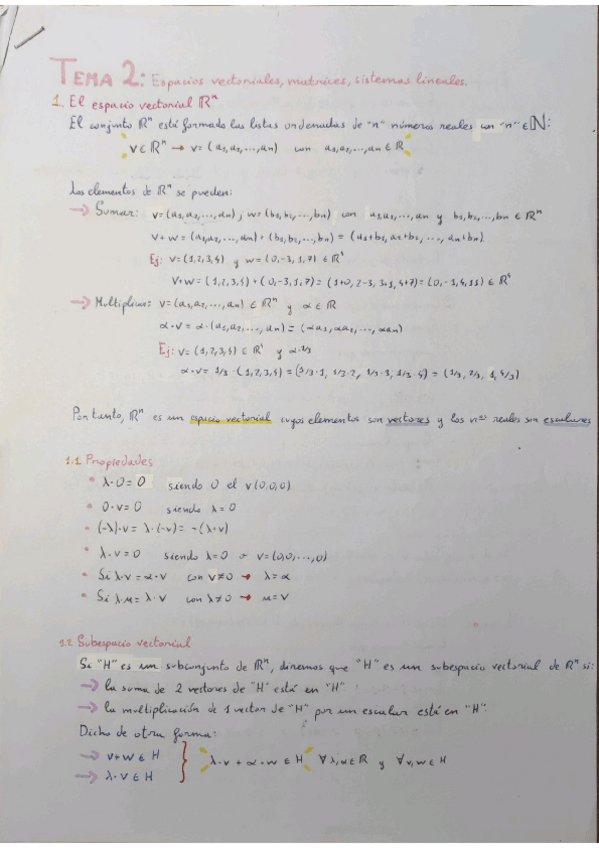 TEMA 2: Espacios vectoriales, matrices, sistemas lineales.
1. El espacio vectorial ℝⁿ
El conjunto ℝⁿ está formado las listas ordenadas de "n" números reales con "n" ∈ ℕ:
v ∈ ℝⁿ → v = (a₁, a₂, ..., aₙ) con a₁, a₂, ..., aₙ ∈ ℝ
Los elementos de ℝⁿ se pueden:
→ Sumar: v = (a₁, a₂, ..., aₙ) ; w = (b₁, b₂, ..., bₙ) con a₁, a₂, ..., aₙ y b₁, b₂, ..., bₙ ∈ ℝⁿ
v + w = (a₁, a₂, ..., aₙ) + (b₁, b₂, ..., bₙ) = (a₁+b₁, a₂+b₂, ..., aₙ+bₙ)
Ej: v = (1,2,3,4) y w = (0,-3,1,7) ∈ ℝ⁴
v+w = (1,2,3,4) + (0,-3,1,7) = (1+0, 2-3, 3+1, 4+7) = (0,-1,4,11) ∈ ℝ⁴
→ Multiplicar: v = (a₁, a₂, ..., aₙ) ∈ ℝⁿ y α ∈ ℝ
α·v = α·(a₁, a₂, ..., aₙ) = (αa₁, αa₂, ..., αaₙ)
Ej: v = (1,2,3,4) ∈ ℝ⁴ y α=1/3
α·v = 1/3·(1,2,3,4) = (1/3·1, 1/3·2, 1/3·3, 1/3·4) = (1/3, 2/3, 1, 4/3)
Por tanto, ℝⁿ es un espacio vectorial cuyos elementos son vectores y los nᵒˢ reales son escalares
1.1 Propiedades
• λ·0 = 0 siendo 0 el v(0,0,0)
• 0·v = 0 siendo λ = 0
• (-λ)·v = λ·(-v) = -(λ·v)
• λ·v = 0 siendo λ=0 o v=(0,0,...,0)
• Si λ·v = α·v con v≠0 → λ = α
• Si λ·u = λ·v con λ≠0 → u = v
1.2 Subespacio vectorial
Si "H" es un subconjunto de ℝⁿ, diremos que "H" es un subespacio vectorial de ℝⁿ si:
→ la suma de 2 vectores de "H" está en "H"
→ la multiplicación de 1 vector de "H" por un escalar está en "H".
Dicho de otra forma:
→ v+w ∈ H } λ·v + α·w ∈ H ∀ λ,α ∈ ℝ y ∀ v,w ∈ H
→ λ·v ∈ H